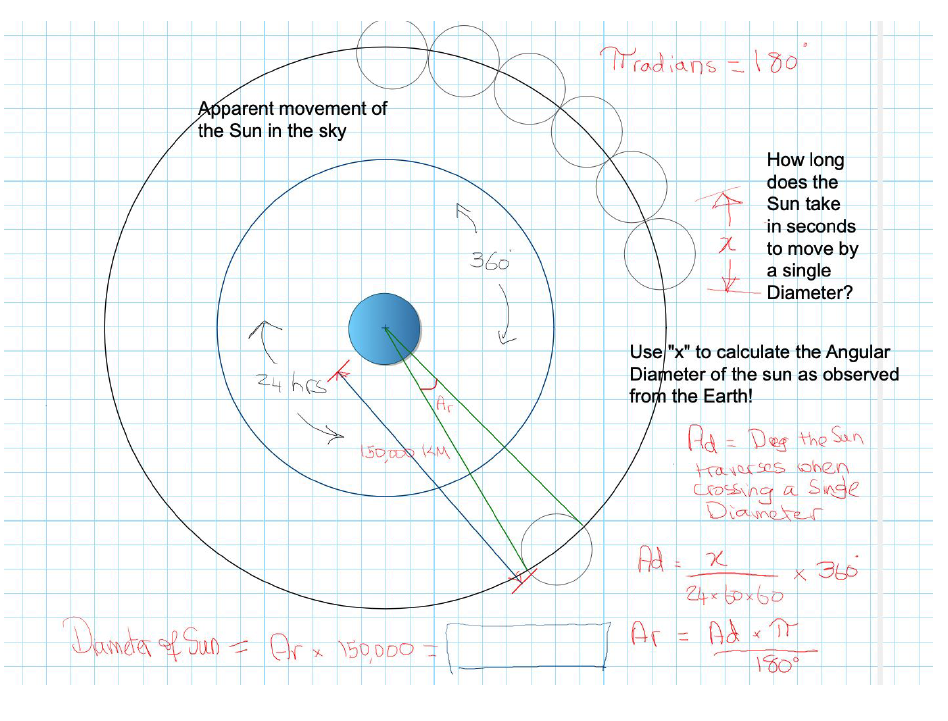 π radians = 180°
Apparent movement of
the Sun in the sky
How long
does the
Sun take
in seconds
to move by
a single
Diameter?
x
360°
24 hrs
Ar
150,000 KM
Use "x" to calculate the Angular
Diameter of the sun as observed
from the Earth!
Ad = Deg the Sun
traverses when
crossing a Single
Diameter
Ad = x / 24×60×60 × 360°
Ar = Ad × π / 180°
Diameter of Sun = Ar × 150,000 =